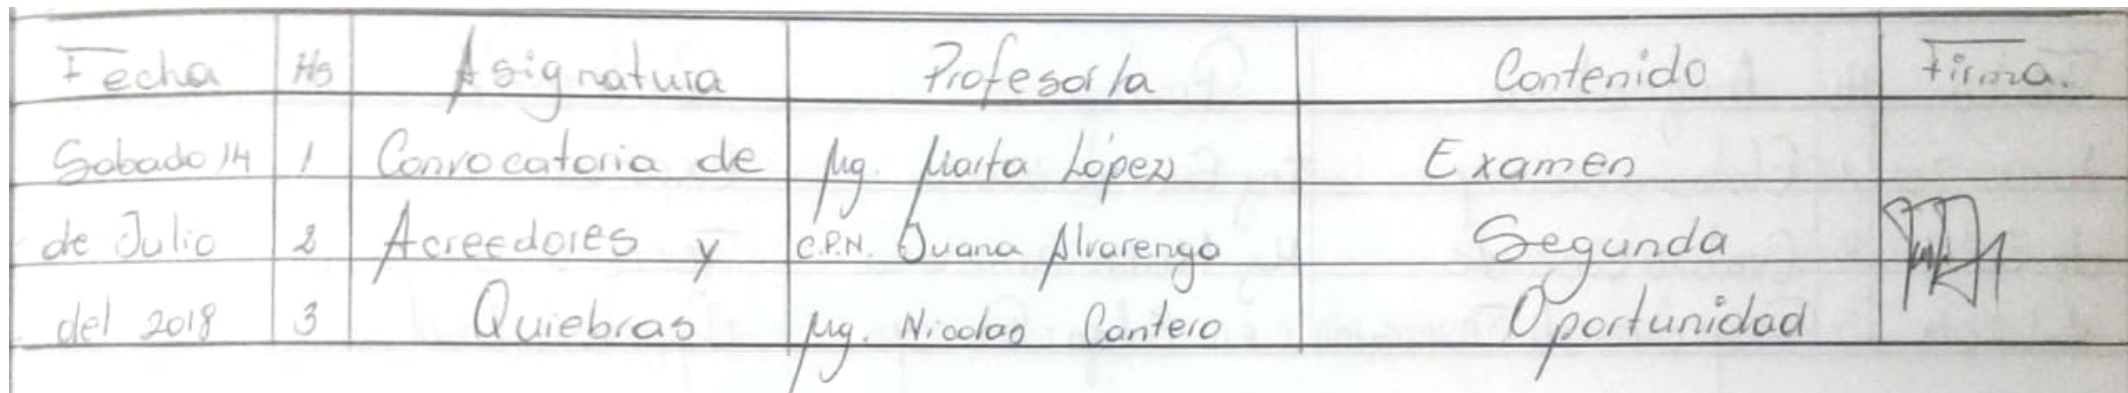 Fecha Hs Asignatura Profesor/a Contenido Firma.
Sabado 14 1 Convocatoria de Mg. Marta López Examen
de Julio 2 Acreedores y C.P.N. Juana Alvarenga Segunda
del 2018 3 Quiebras Mg. Nicolas Cantero Oportunidad